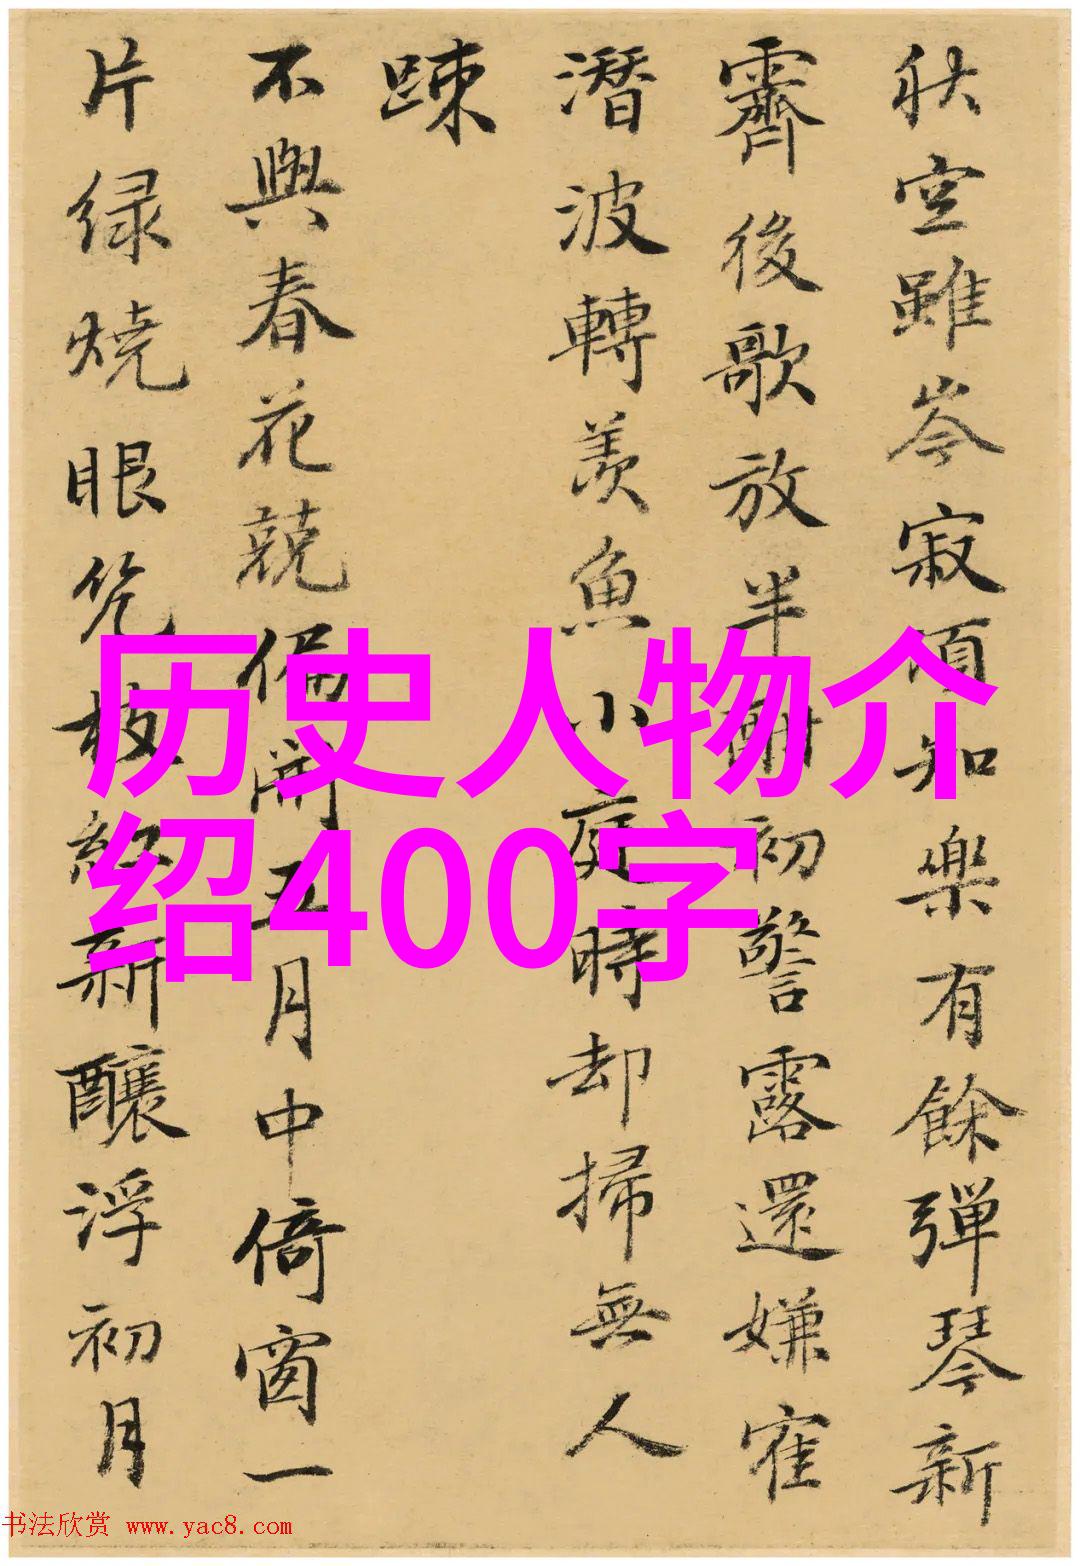 秋空雖岑寂須知樂有餘彈琴新
霽後歌放半酣初警露還嫌寉
潛波轉羨魚小庭時却掃無人
踈
不與春花競偏開五月中倚窗一
片绿燒眼枝紅新釀浮初月
历史人物介
绍400字
书法欣赏 www.yac8.com